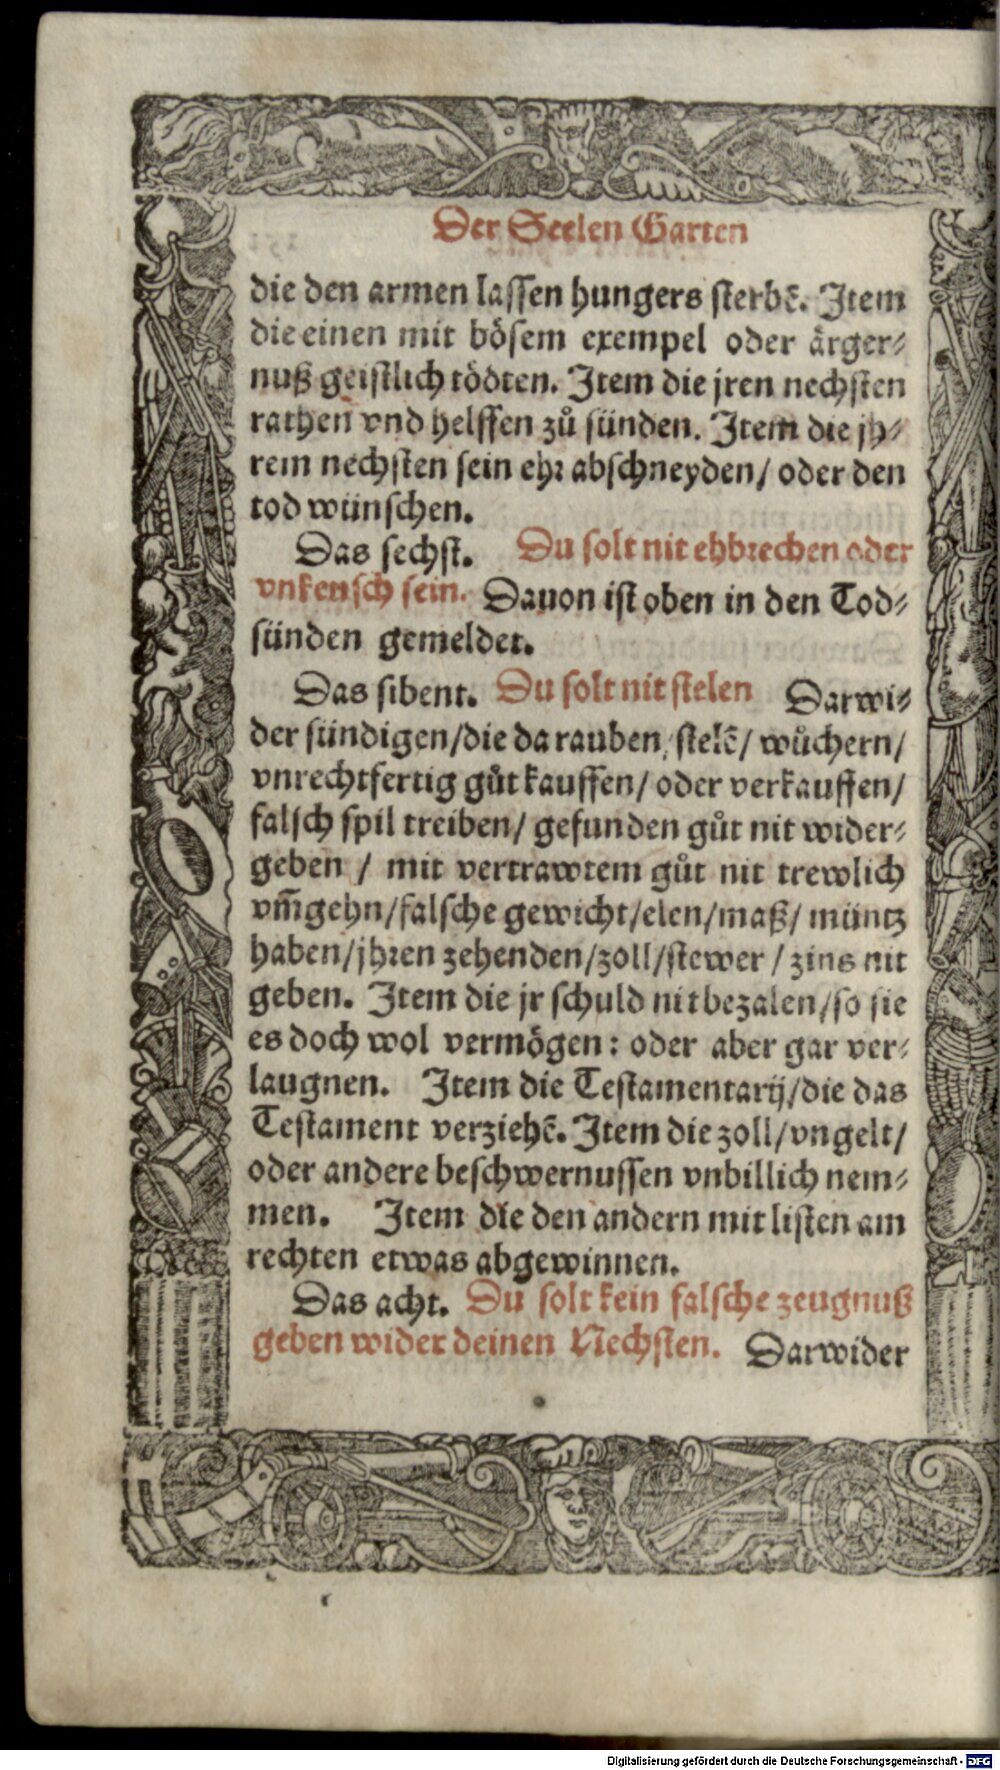 Der Seelen Garten
die den armen lassen hungers sterbē. Item
die einen mit bösem exempel oder ärger⸗
nuß geistlich tödten. Item die jren nechsten
rathen vnd helffen zů sünden. Item die jh⸗
rem nechsten sein ehr abschneyden/ oder den
tod wünschen.
Das sechst. Du solt nit ehbrechen oder
vnkeusch sein. Dauon ist oben in den Tod⸗
sünden gemeldet.
Das sibent. Du solt nit stelen Darwi⸗
der sündigen/die da rauben/stelē/ wůchern/
vnrechtfertig gůt kauffen/ oder verkauffen/
falsch spil treiben/ gefunden gůt nit wider⸗
geben / mit vertrawtem gůt nit trewlich
vm̄gehn/falsche gewicht/elen/maß/ müntz
haben/jhren zehenden/zoll/stewer / zins nit
geben. Item die jr schuld nit bezalen/so sie
es doch wol vermögen: oder aber gar ver⸗
laugnen. Item die Testamentarij/die das
Testament verziehē. Item die zoll/vngelt/
oder andere beschwernussen vnbillich nem⸗
men. Item die den andern mit listen am
rechten etwas abgewinnen.
Das acht. Du solt kein falsche zeugnuß
geben wider deinen Nechsten. Darwider
Digitalisierung gefördert durch die Deutsche Forschungsgemeinschaft - DFG